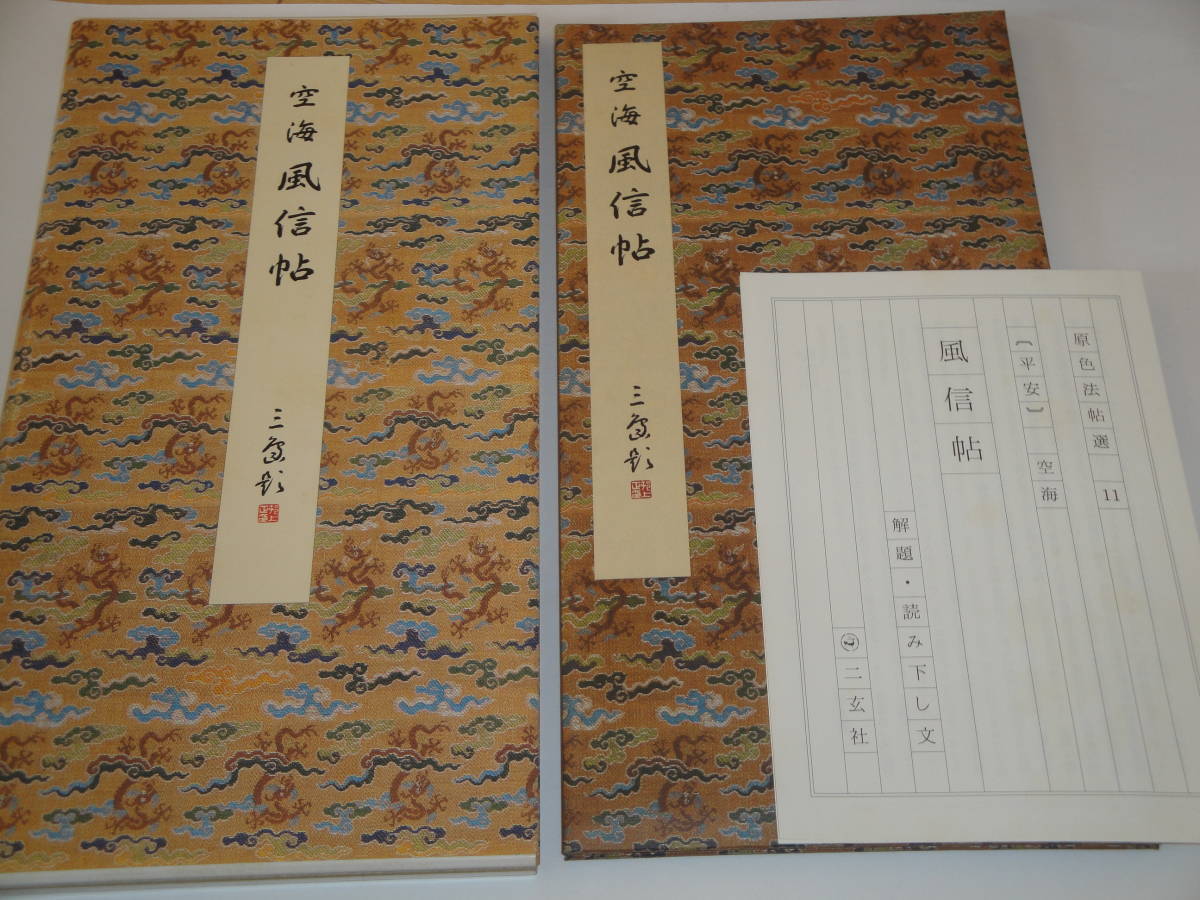 空海風信帖
三
空海風信帖
三
原色法帖選 11
〔平安〕 空海
風信帖
解題・読み下し文
二玄社